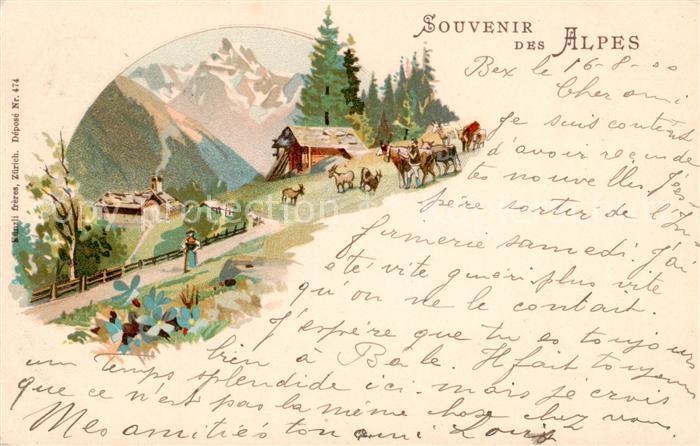 SOUVENIR
DES ALPES
Bex le 16-8-00
Cher ami
Je suis content
d'avoir reçu de
tes nouvelles. J'es-
père sortir de l'In
firmerie samedi. J'ai
été vite guéri plus vite
qu'on ne le contait.
J'espère que tu es toujours
bien à Bâle. Il fait toujours
un temps splendide ici mais je crois
que ce n'est pas la même chose chez vous.
Mes amitiés ton ami Louis
Künzli frères, Zürich. Déposé Nr. 474